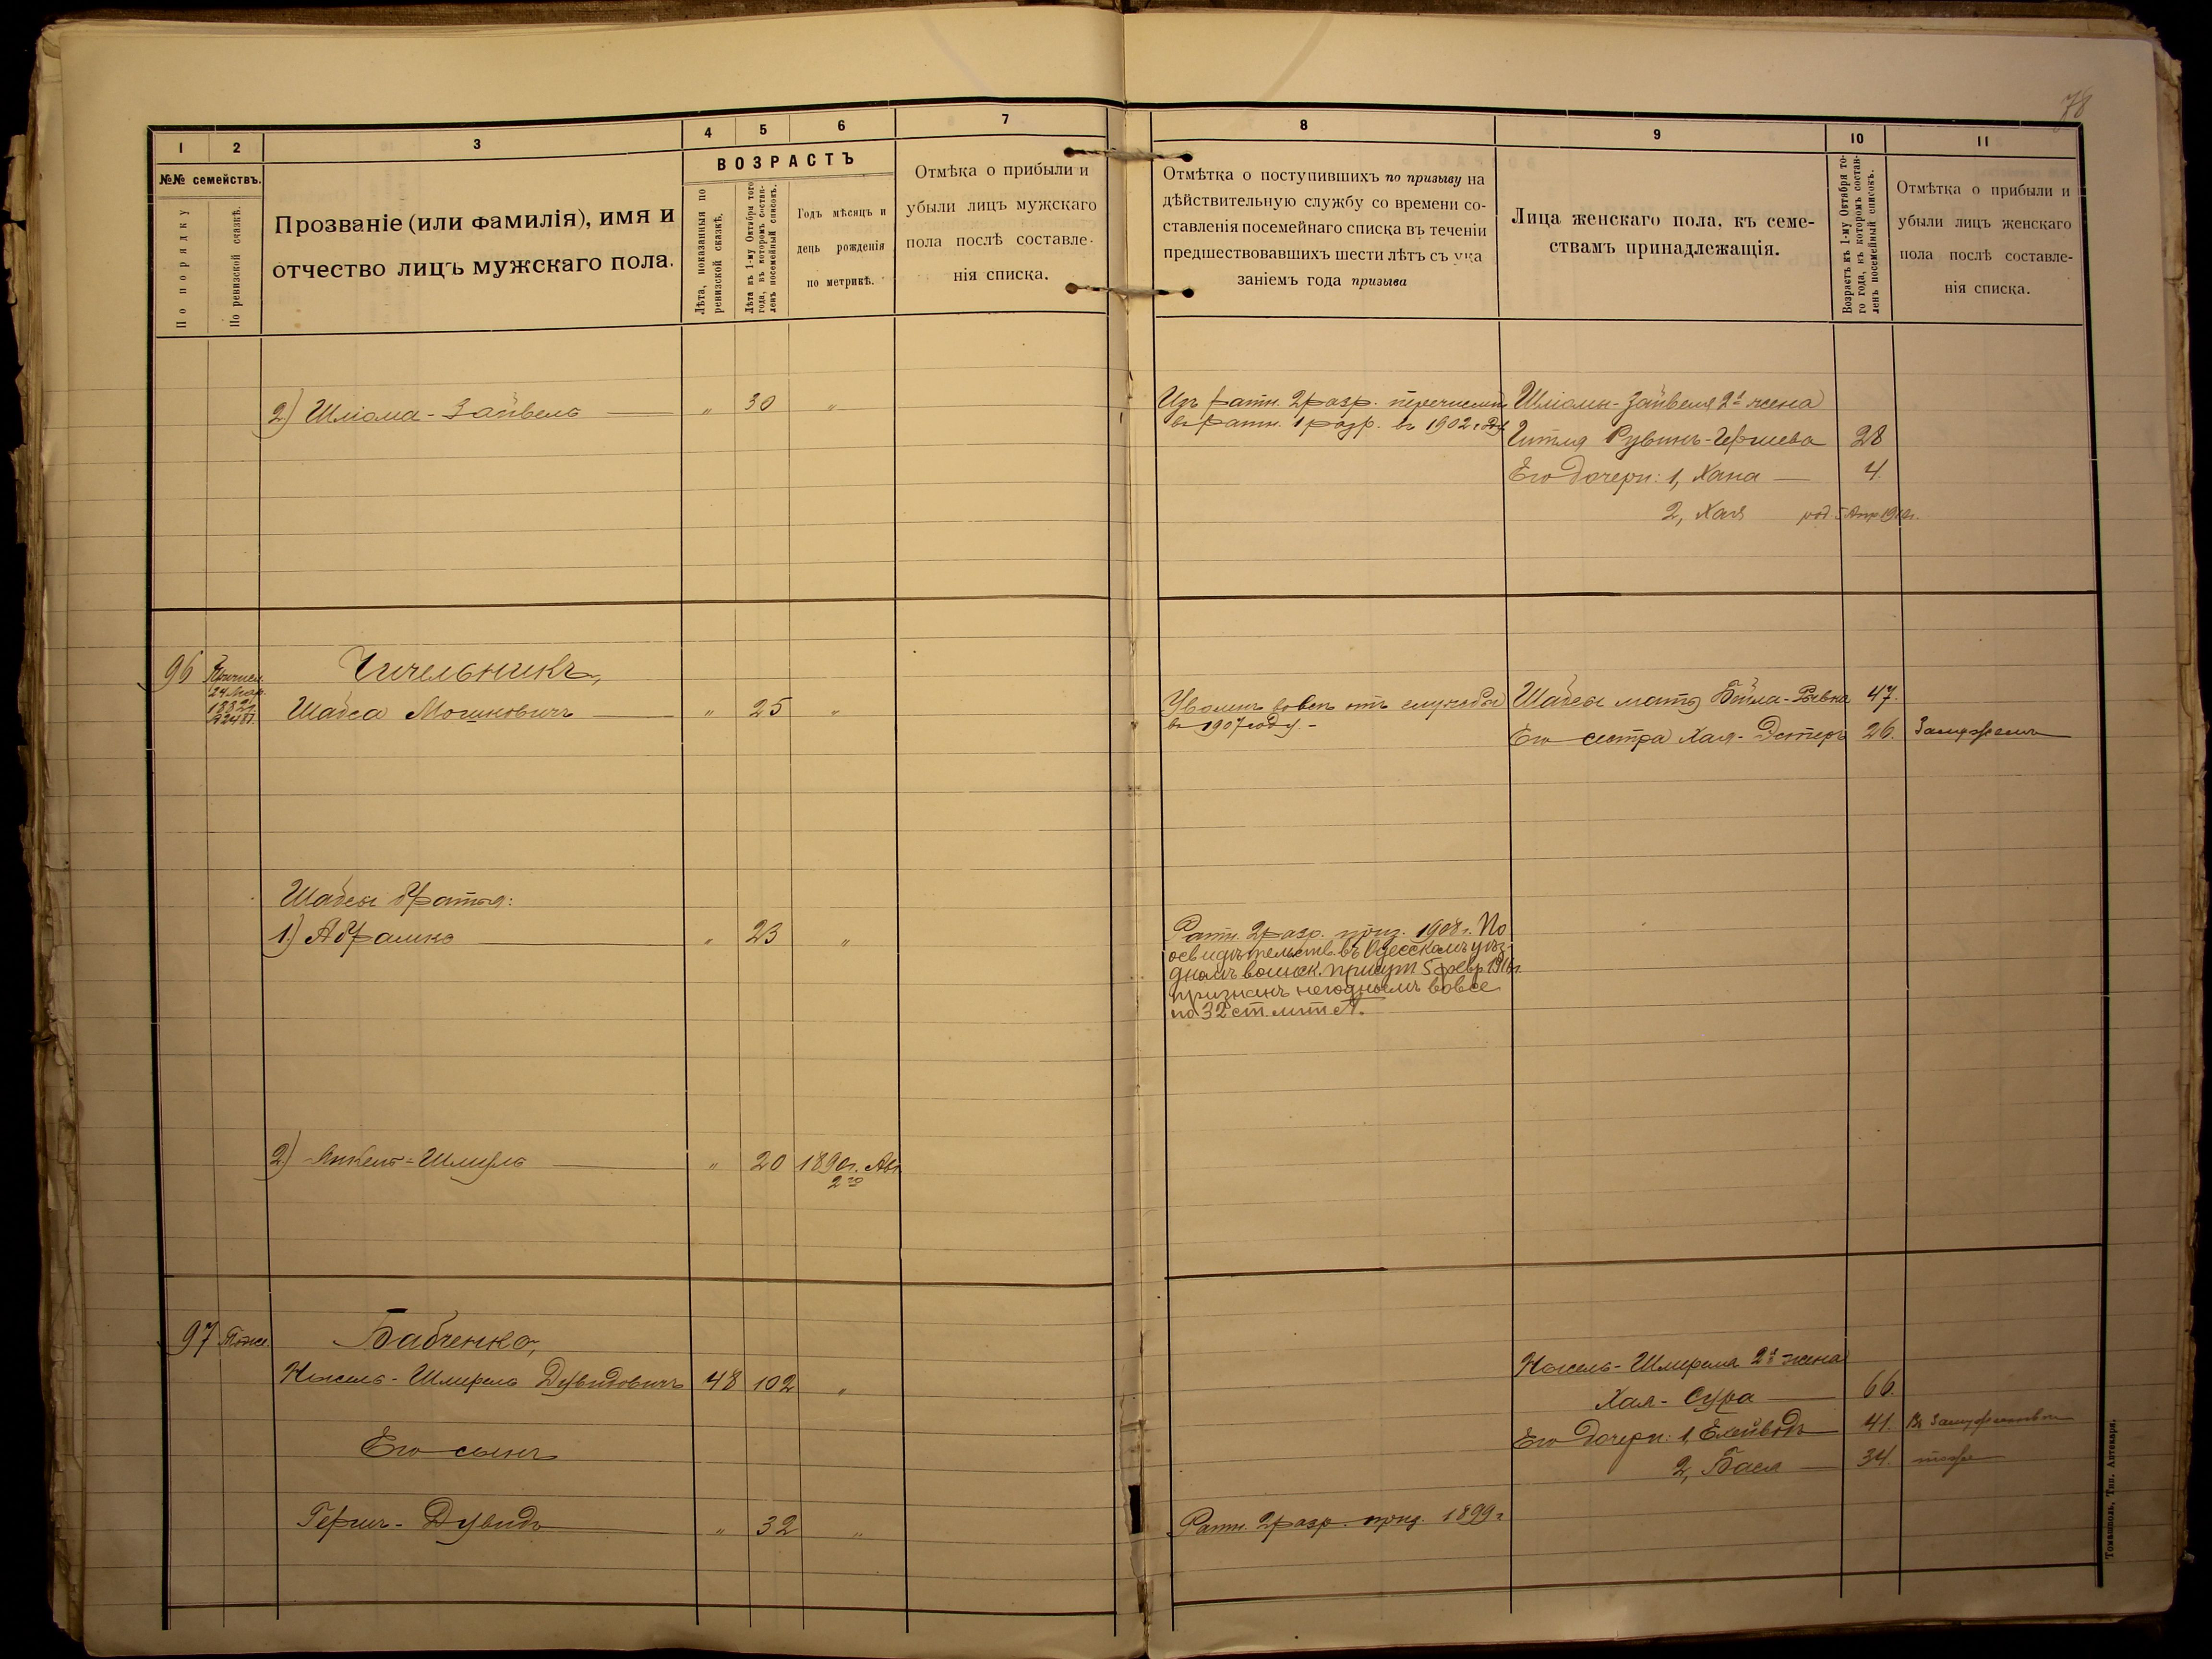 78
1 2 3 4 5 6 7 8 9 10 11
№№ семействъ.
По порядку
По ревизской сказкѣ.
Прозваніе (или фамилія), имя и
отчество лицъ мужскаго пола.
ВОЗРАСТЪ
Лѣта, показанныя по
ревизской сказкѣ.
Лѣта къ 1-му Октября того
года, въ которомъ состав-
ленъ посемейный списокъ.
Годъ мѣсяцъ и
день рожденія
по метрикѣ.
Отмѣка о прибыли и
убыли лицъ мужскаго
пола послѣ составле-
нія списка.
Отмѣтка о поступившихъ по призыву на
дѣйствительную службу со времени со-
ставленія посемейнаго списка въ теченіи
предшествовавшихъ шести лѣтъ съ ука
заніемъ года призыва
Лица женскаго пола, къ семе-
ствамъ принадлежащія.
Возрастъ къ 1-му Октября то-
го года, къ которомъ состав-
ленъ посемейный списокъ.
Отмѣтка о прибыли и
убыли лицъ женскаго
пола послѣ составле-
нія списка.
2) Шліома-Зайвель — „ 30 „
Изъ ратн. 2 разр. перечислен
въ ратн. 1 разр. въ 1902 году
Шліомы-Зайвеля 2я жена
Гитля Рувинъ-Гершева 28
Его дочери: 1, Хана — 4.
2, Хая род. 5 Апр.
96 Причисл.
24 Мар.
1882г.
Чичельникъ,
Шабса Мошковичъ — „ 25 „
Уволенъ вовсе отъ службы
въ 1907 году. -
Шабсы мать Бейла-Ривка 47.
Его сестра Хая-Эстеръ 26. Замужемъ
Шабсы братья:
1.) Абрамко — „ 23 „
Ратн. 2 разр. приз. 1908 г. По
освидѣтельств. въ Одесскомъ уѣз-
дномъ воинск. присут 5 февр. 1916г.
признанъ негоднымъ вовсе
по 32 ст. лит А.
2.) Янкель-Шмуль — „ 20 1890г. Авг.
2го
97 Тоже.
Бабченко,
Нысель-Шмерель Дувидовичъ 48 102 „
Нысель-Шмереля 2я жена
Хая-Сура — 66.
Его сынъ
Его дочери: 1, Ехейводъ — 41. Въ замужествѣ
2, Бася — 34. тоже
Гершъ-Дувидъ — „ 32 „
Ратн. 2 разр. приз. 1899 г
Томашполь, Тип. Аптекаря.